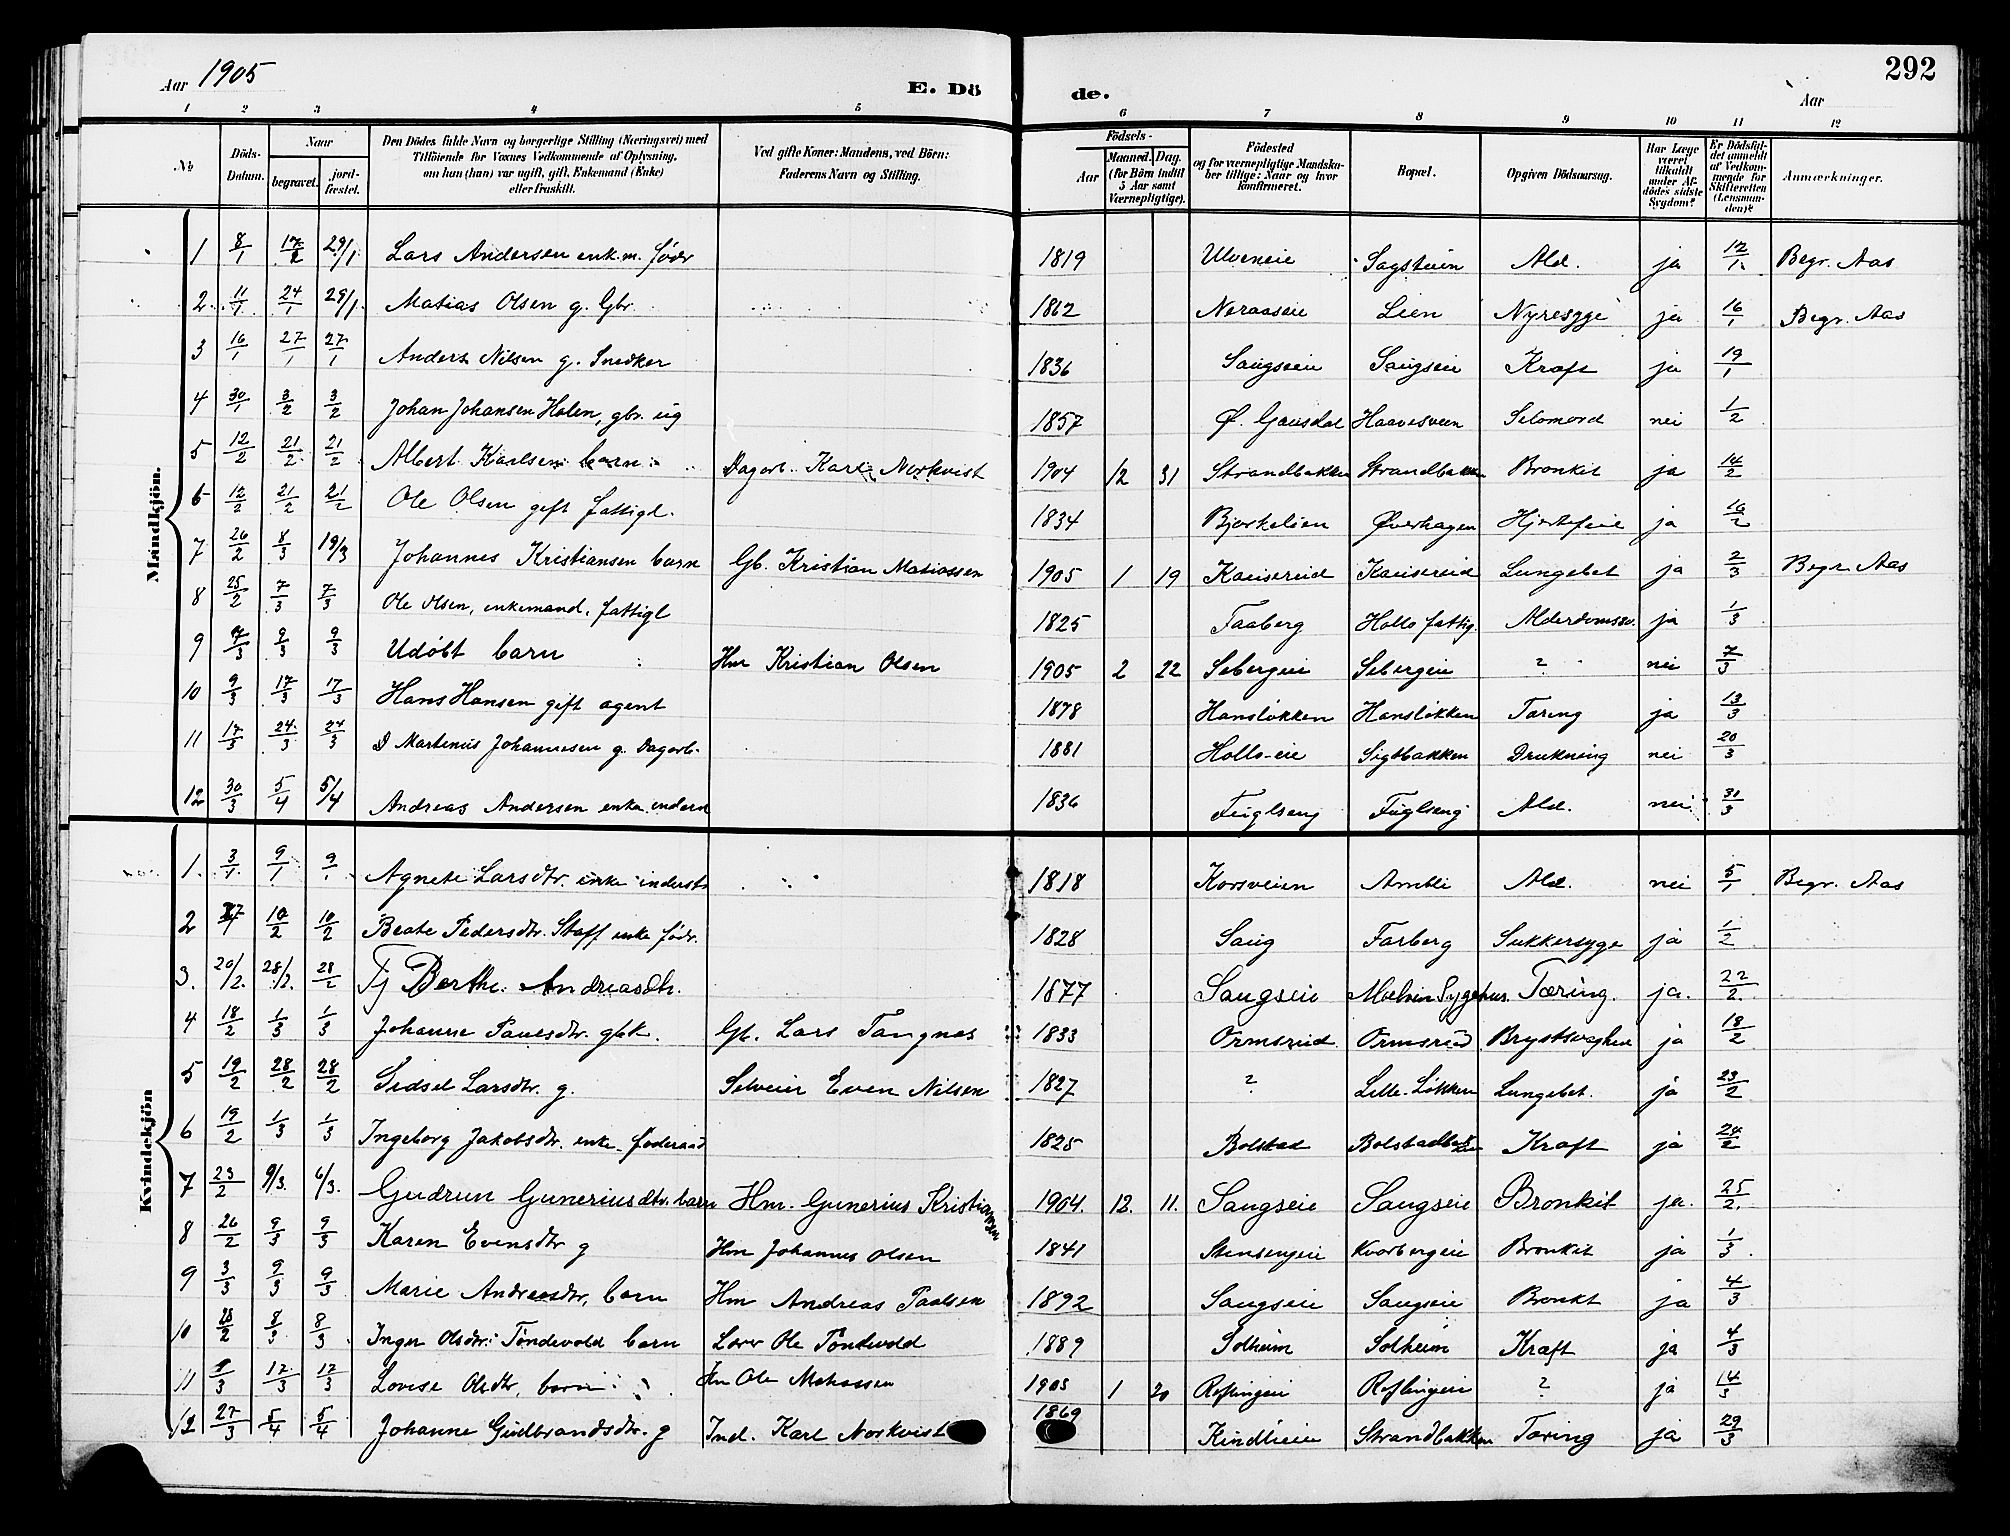 Aar 1905 E. Dö de. Aar 292
1 2 3 4 5 6 7 8 9 10 11 12
No. Döds-Datum. Naar begravet. jord-fæstet. Den Dödes fulde Navn og borgerlige Stilling (Næringsvei) med Tilföiende for Voxnes Vedkommende af Oplysning, om han (hun) var ugift, gift, Enkemand (Enke) eller fraskilt. Ved gifte Koner: Mandens, ved Börn: Faderens Navn og Stilling. Födsels- Aar Maaned. Dag. (for Börn indtil 5 Aar samt Værnepligtige). Födested og for værnepligtige Mandska-ber tillige: Naar og hvor konfirmeret. Bopæl. Opgiven Dödsaarsag. Har Læge været tilkaldt under Af-dödes sidste Sygdom? Er Dödsfal-det anmeldt af Vedkom-mende for Skifteretten (Lensman-den)? Anmærkninger.
Mandkjön.
1 8/1 17/1 29/1 Lars Andersen enk.m. födr 1819 Ulveneie Sagstuen Ald. ja 12/1 Begr. Aas
2 11/1 24/1 29/1 Matias Olsen g. Gbr. 1862 Neraaseie Lien Nyresyge ja 16/1 Begr. Aas
3 16/1 27/1 27/1 Anders Nilsen g. Snedker 1836 Saugseie Saugseie Kræft ja 19/1
4 30/1 3/2 3/2 Johan Johansen Holen, gbr. ug 1857 Ø. Gausdal Haavesveen Selvmord nei 1/2
5 12/2 21/2 21/2 Albert Karlsen barn Dagarb. Karl Norkvist 1904 12 31 Strandbakken Strandbakken Bronkit ja 14/2
6 12/2 21/2 21/2 Ole Olsen gift fattigl. 1834 Bjørkelien Øverhagen Hjertefeil ja 16/2
7 26/2 8/3 19/3 Johannes Kristiansen barn Gb. Kristian Matiassen 1905 1 19 Kausereid Kausereid Lungebet ja 2/3 Begr. Aas
8 25/2 7/3 7/3 Ole Olsen, enkemand, fattigl 1825 Faaberg Hollo fattig. Alderdomssv. ja 1/3
9 7/3 9/3 9/3 Udøbt barn Hm Kristian Olsen 1905 2 22 Sebergeie Sebergeie ? nei 7/3
10 9/3 17/3 17/3 Hans Hansen gift agent 1878 Hansløkken Hansløkken Tæring ja 13/3
11 17/3 24/3 24/3 D Martinus Johannesen g. Dagarb. 1881 Hollo-eie Sigtbakken Drukning nei 20/3
12 30/3 5/4 5/4 Andreas Andersen enkem. inders 1836 Fuglseng Fuglseng Ald. nei 31/3
Kvindekjön
1. 3/1 9/1 9/1 Agnete Larsdtr. enke inderst 1818 Korsveien Amlie Ald. nei 5/1 Begr. Aas
2 10/2 10/2 Beate Pedersdtr. Staff enke födr. 1828 Saug Farberg Sukkersyge ja 1/2
3. 20/2. 28/2. 28/2 Tj Berthe Andreasdtr. 1877 Saugseie Moelven Sygehus. Tæring. ja. 22/2.
4 18/2 1/3 1/3 Johanne Paulsdtr. gbk. Gb. Lars Tangnes 1833 Ormsrud Ormsrud Brystsvaghed ja 18/2
5 19/2 28/2 28/2 Sidsel Larsdtr. g. Selveier Even Nilsen 1827 ? Lille-Løkken Lungebet. ja 23/2
6 19/2 1/3 1/3 Ingeborg Jakobsdtr. enke föderaad 1825 Bolstad Bolstadbakken Kræft ja 24/2
7 23/2 9/3. 6/3. Gudrun Guneriusdtr. barn Hm. Gunerius Kristiansen 1904. 12. 11. Saugseie Saugseie Bronkit ja. 25/2.
8 26/2 9/3 9/3 Karen Evensdtr g Hm Johannes Olsen 1841 Stensengeie Kvorbergeie Bronkit ja 1/3.
9 3/3 9/3 9/3 Marie Andreasdtr, barn Hm Andreas Paulsen 1892 Saugseie Saugseie Bronkt ja 4/3
10 28/2 8/3 8/3 Inger Olsdtr. Tøndevold barn Lærer Ole Tøndevold 1889 Solheim Solheim Kræft ja 4/3
11 9/3 17/3 17/3 Lovise Olsdtr, barn Hm Ole Mathiassen 1905 1 20 Roflingeie Roflingeie ? ja 14/3
12 27/3 5/4 5/4 Johanne Gudbrandsdtr. g Ind. Karl Norkvist 1869 Kindlieie Strandbakken Tæring ja 29/3